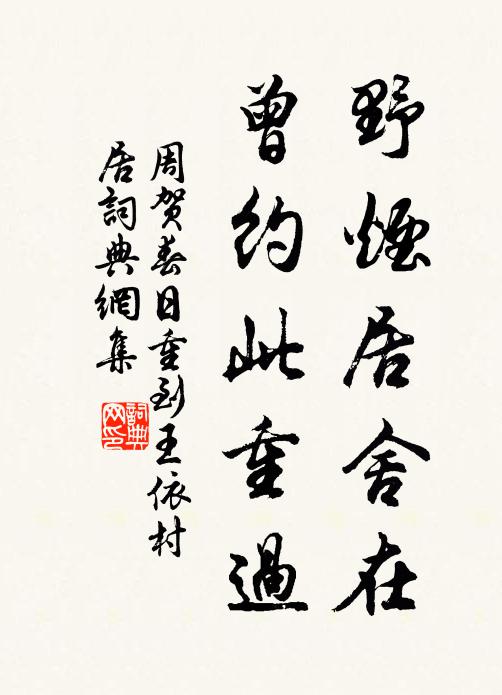 野煙居舍在
曾約此重過
周贺春日重到王依村
居詞典網集
詞典网印